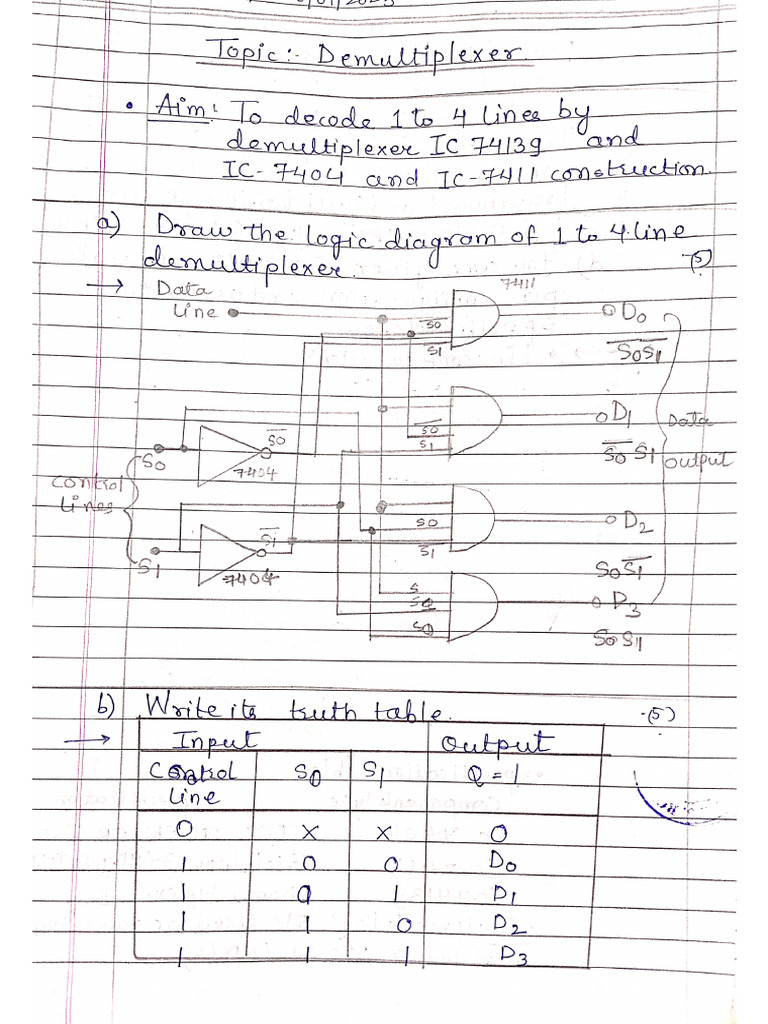 Topic:- Demultiplexer.
• Aim: To decode 1 to 4 lines by
demultiplexer IC 74139 and
IC-7404 and IC-7411 construction.
a) Draw the logic diagram of 1 to 4 line
demultiplexer. -(5)
→ Data
Line
7411
S̅0̅
S̅1̅
D0
S̅0̅S̅1̅
S̅0̅
S1
D1
S̅0̅ S1
Data
Output
S0
7404
S̅0̅
Control
Lines
S1
7404
S̅1̅
S0
S̅1̅
D2
S0S̅1̅
S
D3
S0 S1
b) Write its truth table. -(5)
→ Input Output
Control S0 S1 Q = 1
Line
0 x x 0
1 0 0 D0
1 0 1 D1
1 1 0 D2
1 1 1 D3